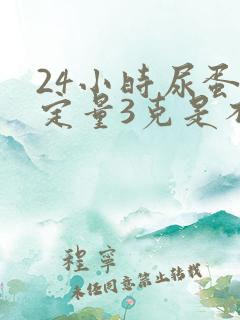 24小时尿蛋
定量3克是不
程寧
未经同意禁止转载